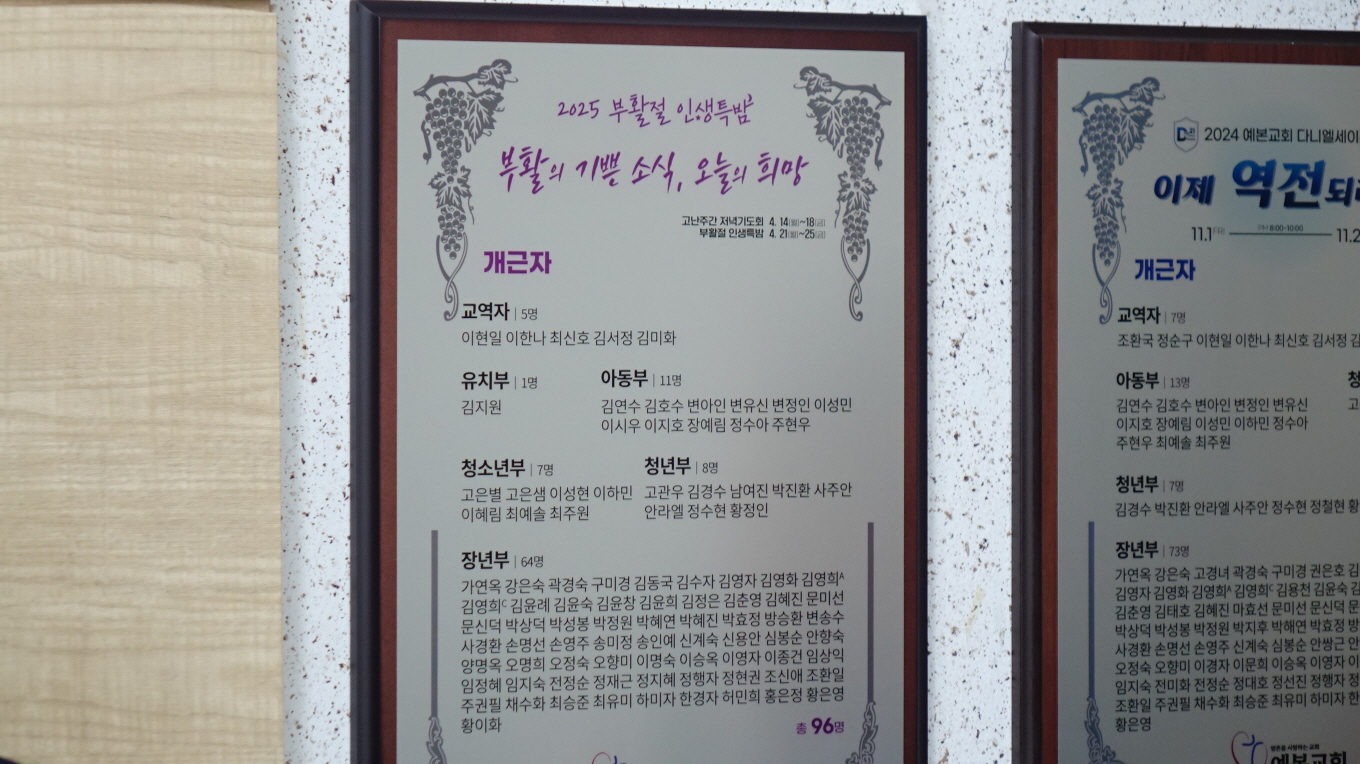 2025 부활절 인생특밤
부활의 기쁜 소식, 오늘의 희망
고난주간 저녁기도회 4. 14(월)~18(금)
부활절 인생특밤 4. 21(월)~25(금)
개근자
교역자 | 5명
이현일 이한나 최신호 김서정 김미화
유치부 | 1명
김지원
아동부 | 11명
김연수 김호수 변아인 변유신 변정인 이성민
이시우 이지호 장예림 정수아 주현우
청소년부 | 7명
고은별 고은샘 이성현 이하민
이혜림 최예솔 최주원
청년부 | 8명
고관우 김경수 남여진 박진환 사주안
안라엘 정수현 황정인
장년부 | 64명
가연옥 강은숙 곽경숙 구미경 김동국 김수자 김영자 김영화 김영희A
김영희C 김윤례 김윤숙 김윤창 김윤희 김정은 김춘영 김혜진 문미선
문신덕 박상덕 박성봉 박정원 박혜연 박혜진 박효정 방승환 변송수
사경환 손명선 손영주 송미정 송인예 신계숙 신용안 심봉순 안향숙
양명옥 오명희 오정숙 오향미 이명숙 이승옥 이영자 이종건 임상익
임정혜 임지숙 전정순 정재근 정지혜 정행자 정현권 조신애 조환일
주권필 채수화 최승준 최유미 하미자 한경자 허민희 홍은정 황은영
황이화
총 96명
2024 예본교회 다니엘세이
이제 역전되
11.1 FRI 8:00-10:00 11.2
개근자
교역자 | 7명
조환국 정순구 이현일 이한나 최신호 김서정 김
아동부 | 13명
김연수 김호수 변아인 변정인 변유신
이지호 장예림 이성민 이하민 정수아
주현우 최예솔 최주원
청년부 | 7명
김경수 박진환 안라엘 사주안 정수현 정철현 황
장년부 | 73명
가연옥 강은숙 고경녀 곽경숙 구미경 권은호 김
김영자 김영화 김영희A 김영희C 김용천 김윤숙 김
김춘영 김태호 김혜진 마효선 문미선 문신덕 문
박상덕 박성봉 박정원 박지후 박해연 박효정 방
사경환 손명선 손영주 신계숙 심봉순 안쌍근 안
오정숙 오향미 이경자 이문희 이승옥 이영자 이
임지숙 전미화 전정순 정대호 정선진 정행자 정
조환일 주권필 채수화 최승준 최유미 하미자 한
황은영
예본교회